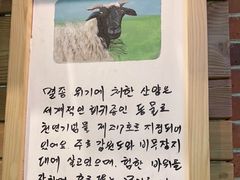 멸종 위기에 처한 산양은
세계적인 희귀종인 동물로
천연기념물 제217호로 지정되어
있어요 주로 강원도와 비무장지
대에 살고 있으며, 험한 바위를